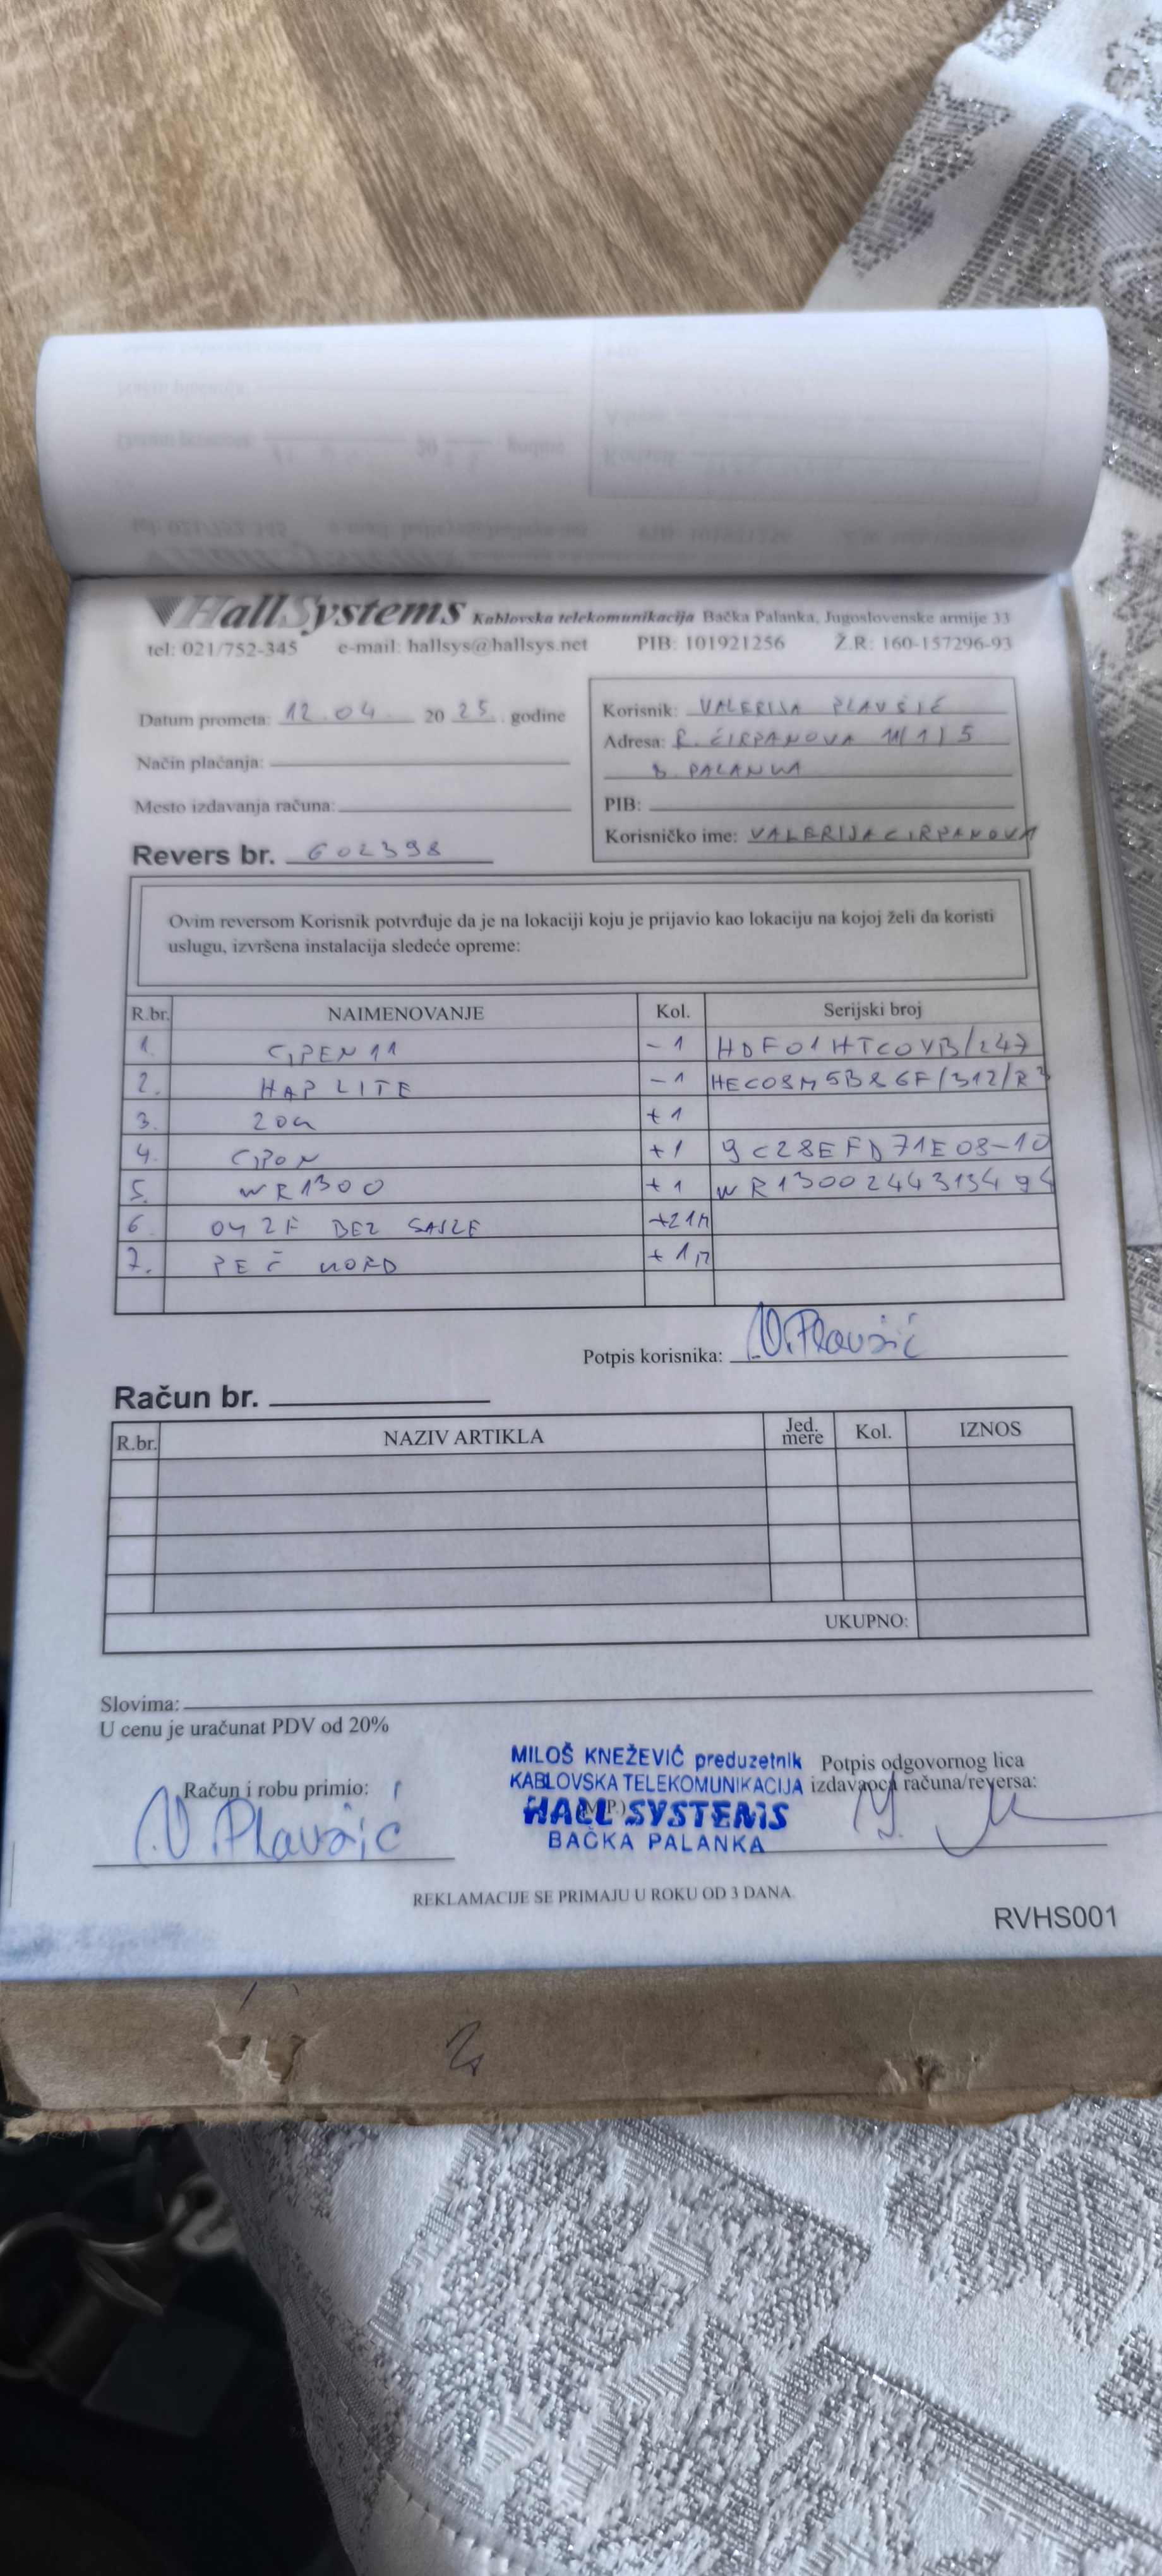 HallSystems Kablovska telekomunikacija Bačka Palanka, Jugoslovenske armije 33
tel: 021/752-345 e-mail: hallsys@hallsys.net PIB: 101921256 Ž.R: 160-157296-93
Datum prometa: 12.04. 20 25. godine
Način plaćanja:
Mesto izdavanja računa:
Revers br. 602398
Korisnik: VALERIJA PLAVŠIĆ
Adresa: R. ĆIRPANOVA 11/1/5
B. PALANKA
PIB:
Korisničko ime: VALERIJACIRPANOVA
Ovim reversom Korisnik potvrđuje da je na lokaciji koju je prijavio kao lokaciju na kojoj želi da koristi
uslugu, izvršena instalacija sledeće opreme:
R.br. NAIMENOVANJE Kol. Serijski broj
1. GPEN11 -1 HDF01HTC0VB/247
2. HAP LITE -1 HEC08M5B86F/312/R3
3. +1
4. GPON +1 9C28EFD71E08-10
5. WR1300 +1 WR1300244313494
6. BEZ SAJLE +21M
7. +1
Potpis korisnika: V.Plavšić
Račun br.
R.br. NAZIV ARTIKLA Jed. mere Kol. IZNOS
UKUPNO:
Slovima:
U cenu je uračunat PDV od 20%
Račun i robu primio:
V.Plavšić
MILOŠ KNEŽEVIĆ preduzetnik
KABLOVSKA TELEKOMUNIKACIJA
(M.P.)
HALL SYSTEMS
BAČKA PALANKA
Potpis odgovornog lica
izdavaoca računa/reversa:
REKLAMACIJE SE PRIMAJU U ROKU OD 3 DANA.
RVHS001